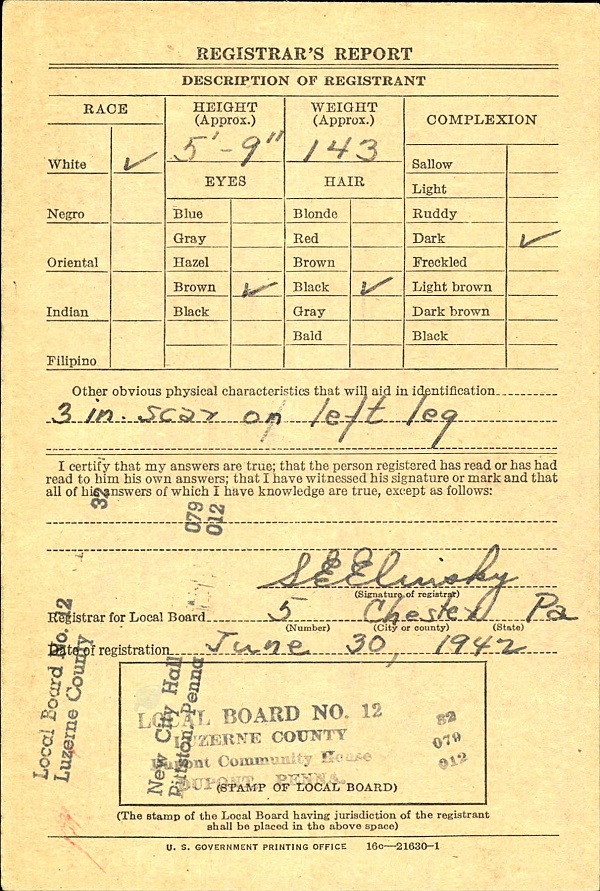 REGISTRAR'S REPORT
DESCRIPTION OF REGISTRANT
RACE
HEIGHT (Approx.)
WEIGHT (Approx.)
COMPLEXION
5'-9"
143
White ✓
EYES
HAIR
Sallow
Light
Negro
Blue
Blonde
Ruddy
Gray
Red
Dark ✓
Oriental
Hazel
Brown
Freckled
Brown ✓
Black ✓
Light brown
Indian
Black
Gray
Dark brown
Bald
Black
Filipino
Other obvious physical characteristics that will aid in identification
3 in. scar on left leg
I certify that my answers are true; that the person registered has read or has had
read to him his own answers; that I have witnessed his signature or mark and that
all of his answers of which I have knowledge are true, except as follows:
32
079
012
S E Elinsky
(Signature of registrar)
Registrar for Local Board 5 Chester Pa
(Number) (City or county) (State)
Date of registration June 30, 1942
Local Board No. 12
Luzerne County
New City Hall
Pittston, Penna
LOCAL BOARD NO. 12
LUZERNE COUNTY
Dupont Community House
DUPONT, PENNA.
32
079
012
(STAMP OF LOCAL BOARD)
(The stamp of the Local Board having jurisdiction of the registrant
shall be placed in the above space)
U. S. GOVERNMENT PRINTING OFFICE 16c—21630-1